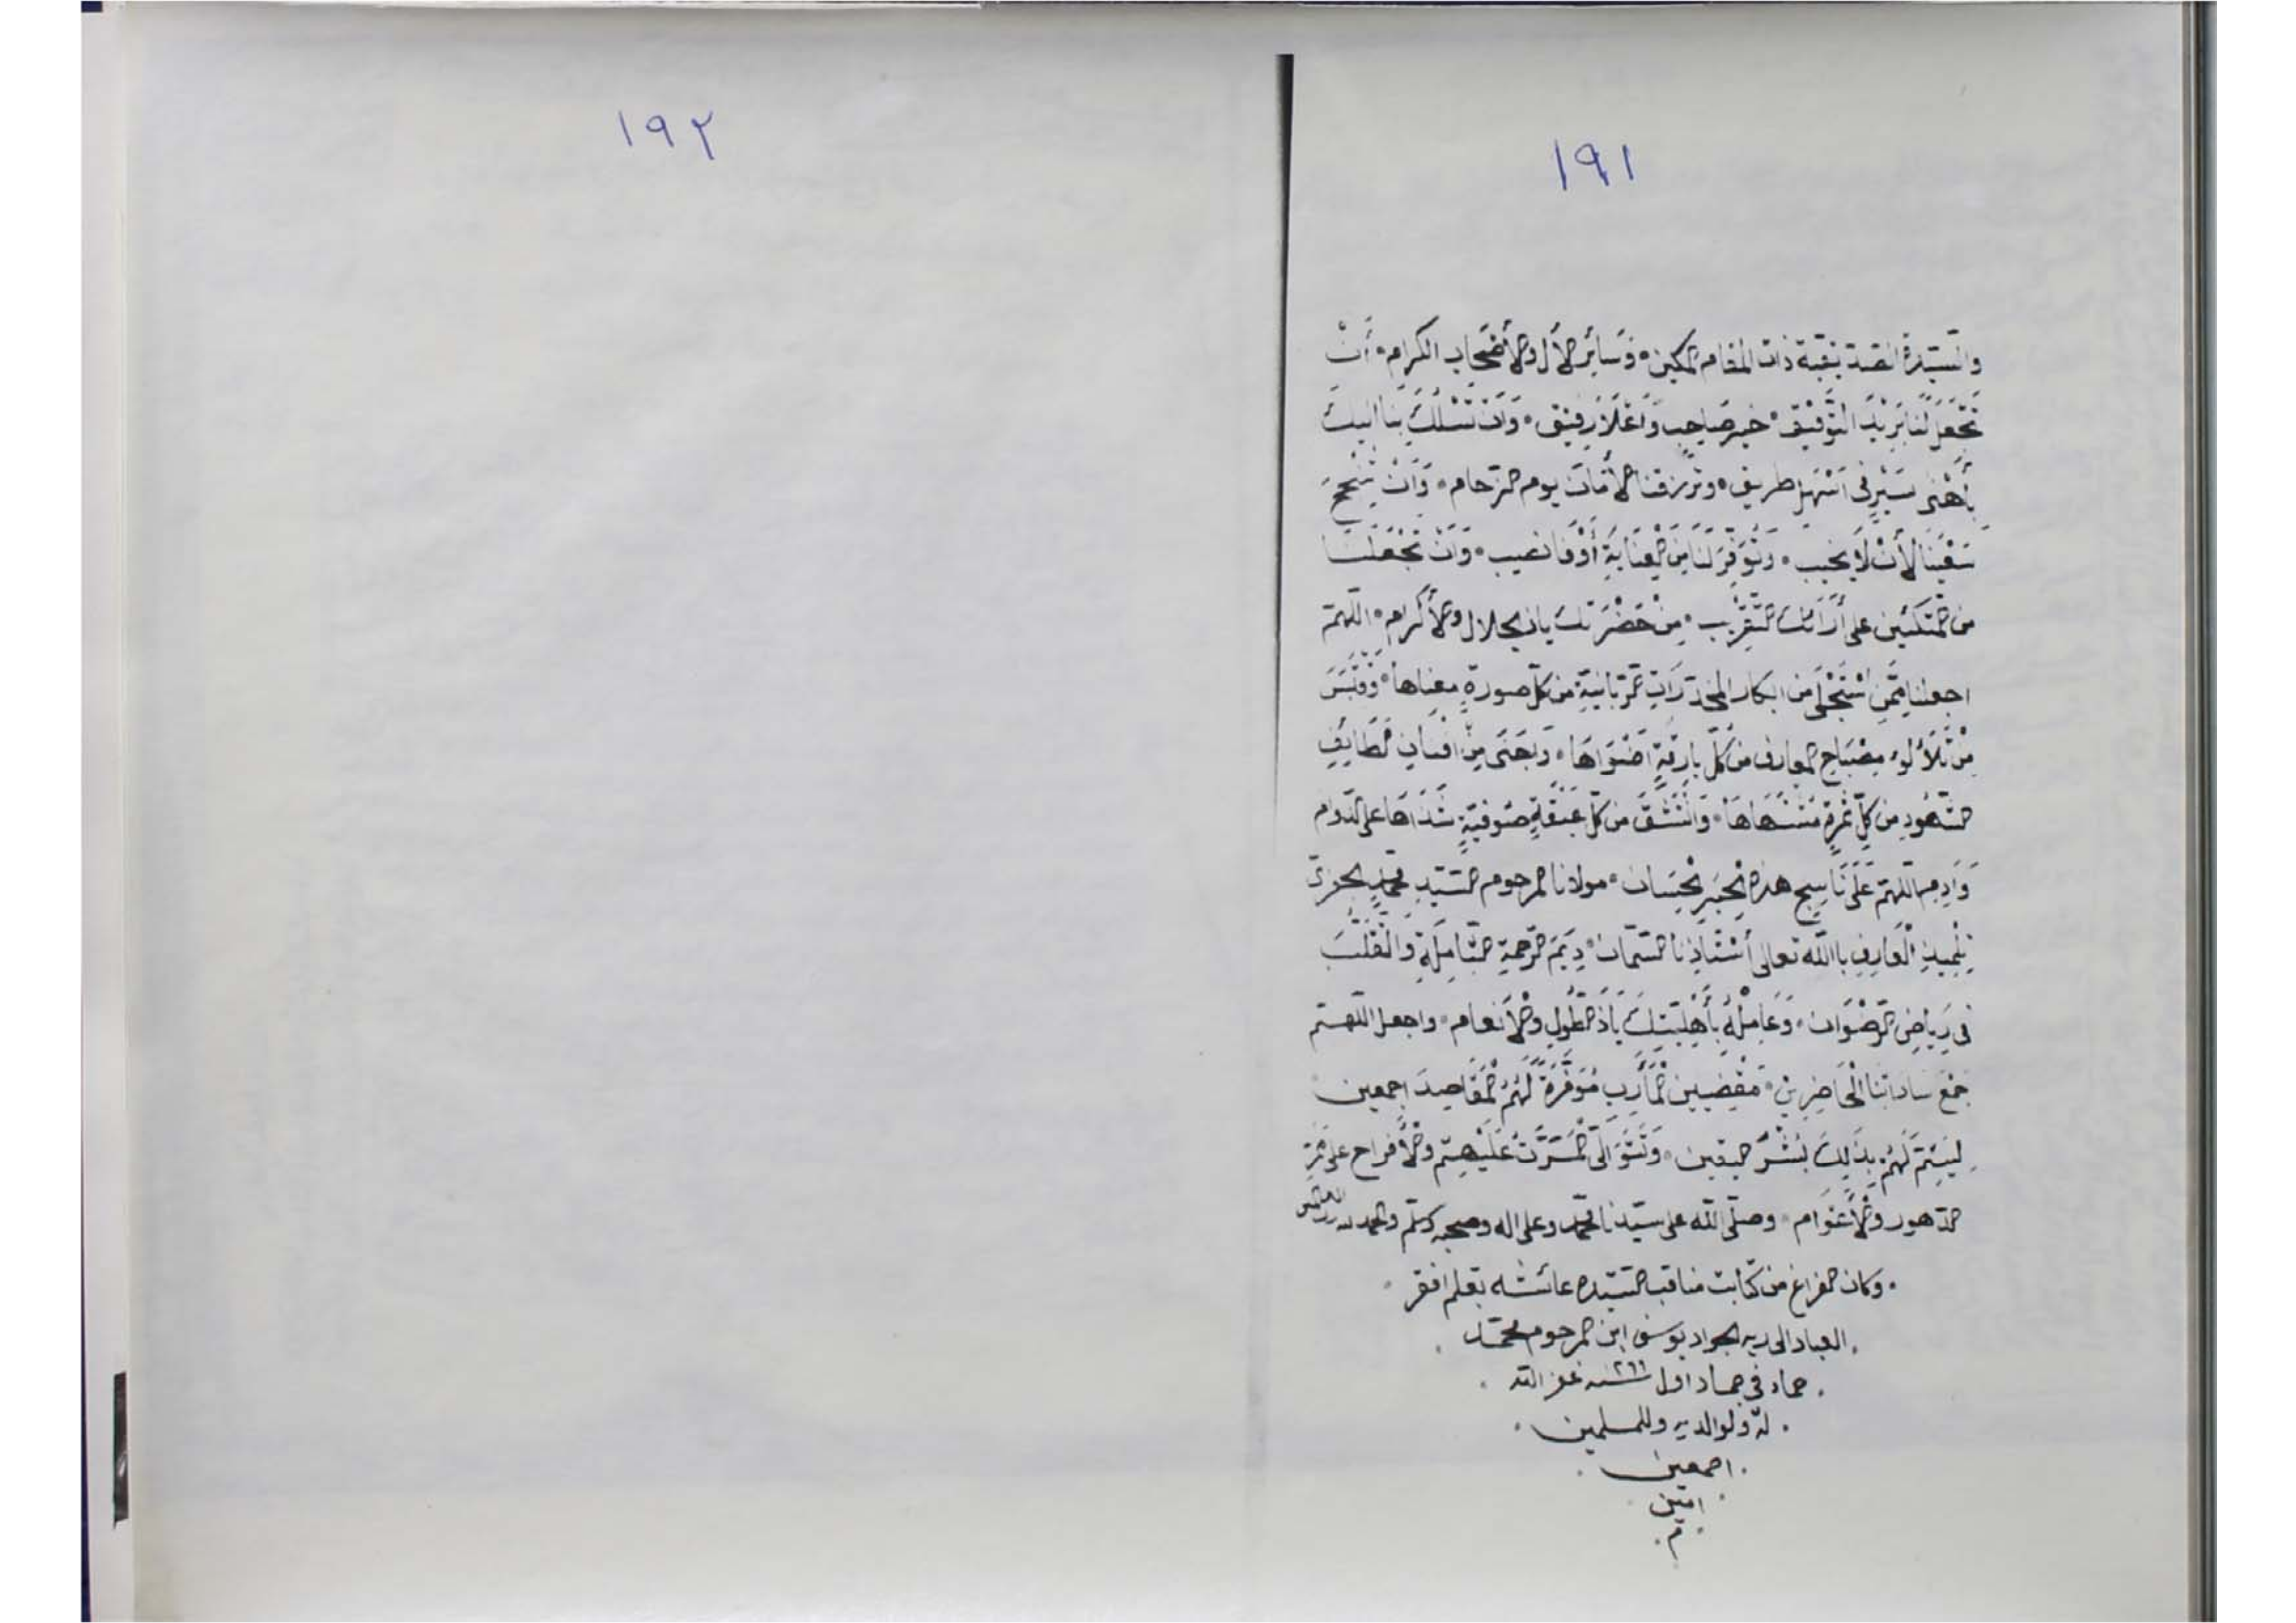 ١٩١
والسيدة الصديقية ذات المقام المكين وسائر الأل والأصحاب الكرام أن
تجعل لنا بريد التوفيق خير صاحب وأعلا رفيق وأن تسلك بنا اليك
بأهنى سير في أسهل طريق وترزقنا الأمان يوم الزحام وأن تنجح
سعينا لأن لا يخيب وتوفر لنا من العناية أوفا نصيب وأن تجعلنا
من المتكئين على أرائك التقريب من حضرتك ياذ الجلال والأكرام اللهم
اجعلنا ممن استجلى من ابكار المخدرات الربانية من كل صورة معناها وقبس
من تلألؤ مصباح المعارف من كل بارقة اضواها واجتنى من افنان لطايف
الشهود من كل ثمرة مشتهاها وانتشق من كل عبقة صوفية شذاها على الدوام
وادم اللهم على ناسج هذه الحبر الحسان مولانا المرحوم السيد محمد الجزرى
تلميذ العارف باالله تعالى أستاذنا السمان ديم الرحمة الشاملة والتقلب
في رياض الرضوان وعامله بأهليتك ياذ الطول والأنعام واجعل اللهم
جمع ساداتنا الحاضرين مقضيين المأرب موفرة لهم المقاصد اجمعين
ليتم لهم بذلك بشر اليقين وتتوالى المسرت عليهم والأفراح على ممر
الدهور والأعوام وصلى الله على سيدنا محمد وعلى اله وصحبه وسلم والحمد لله رب العالمين
وكان الفراغ من كتابت مناقب السيده عائشه بقلم افقر
العباد الى ربه الجواد يوسف ابن المرحوم محمد
حماد في جماد اول سنه ١٢٦٦ غفر الله
له ولوالديه وللمسلمين
اجمعين
امين
م
١٩٢